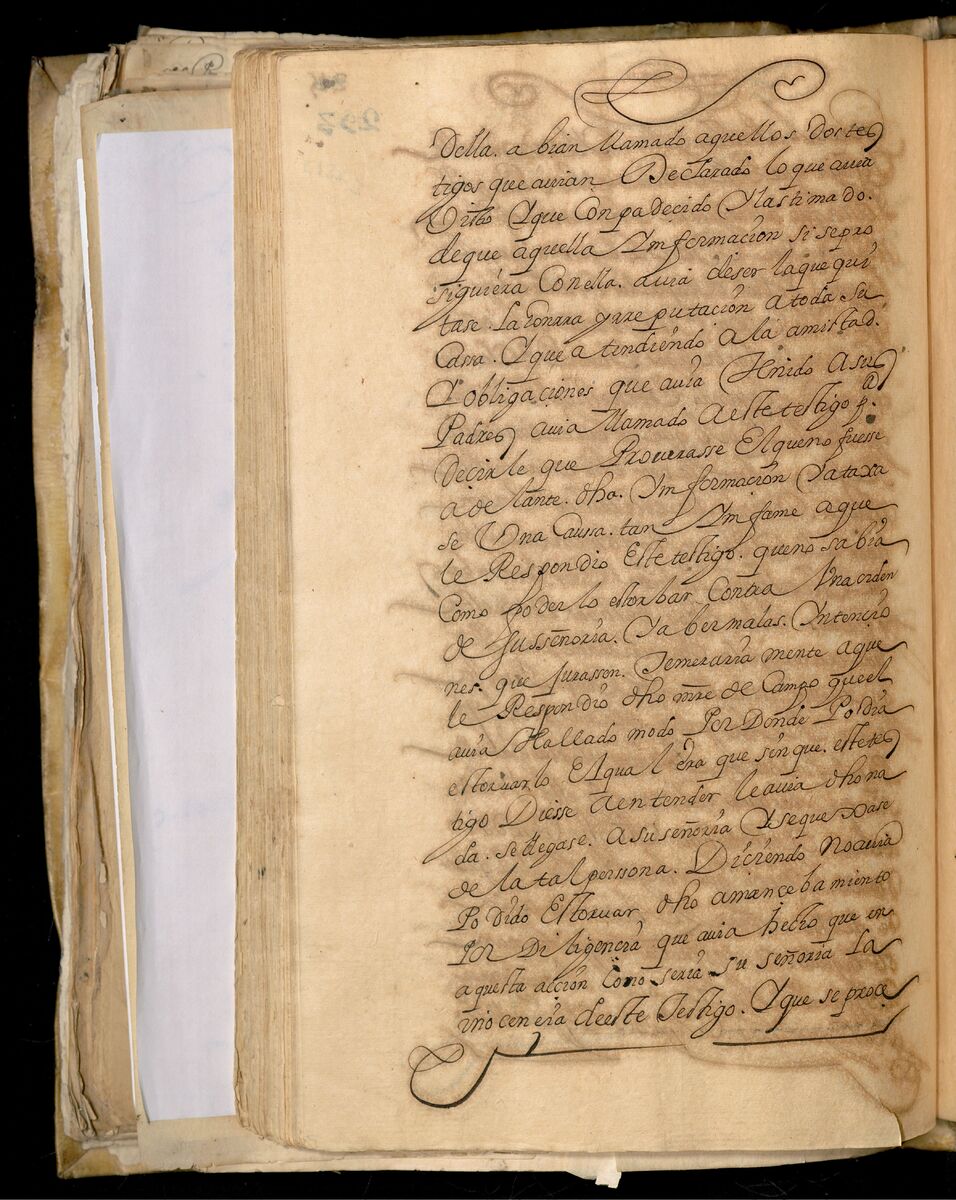 della. abian llamado aquellos dos tes
tigos que auian Declarado lo que auia
Dicho Y que Conpadecido Y lastimado.
de que aquella Ynformacion si se pro
siguiera Con ella. auia de ser la que qui
tase. la honrra y rreputacion a toda. su
Cassa. Y que atendiendo a la amistad.
Y obligaciones que auia Tenido a sus
Padres auia llamado a este testigo p.ª
Decirle que Procurasse El que no fuesse
adelante. dha. Ynformacion Y ataxa
se Una Caussa. tan Ynfame a que
le Respondio Este testigo. que no sabia
Como poderlo estorbar Contra Una orden
de su señoria. Y a ber malas. Yntencio
nes. que jurassen. Temerariamente a que
le Respondio dho mre de Campo que el
auia Hallado modo Por Donde Podia
estoruarlo El qual era que sin que. este tes
tigo Diesse a entender le auia dho na
da. se llegase. a su señoria Y se quexase
de la tal persona. Diciendo no auia
Podido Estoruar dho amancebamiento
Por Diligencia que auia hecho que en
aquesta accion Conoseria su señoria la
inocencia de este Testigo. Y que se proce